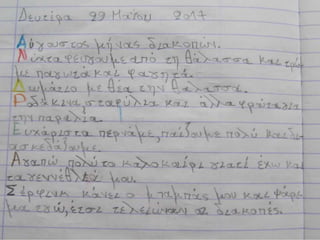 Δευτέρα 29 Μαΐου 2017
Αύγουστος μήνας διακοπών.
από τη θάλασσα και τρώ
με παγωτά και φαγητά.
Δωμάτιο με θέα την θάλασσα.
Ροδάκινα, σταφύλια και άλλα φρούτα για
την παραλία.
Ευχάριστα περνάμε, παίζουμε πολύ και δια
σκεδάζουμε.
Αγαπώ πολύ το καλοκαίρι γιατί έχω και
τα γενέθλιά μου.
Σέρφινκ κάνει ο μπαμπάς μου και ψάρε
μα εγώ, έτσι τελειώνουν οι διακοπές.